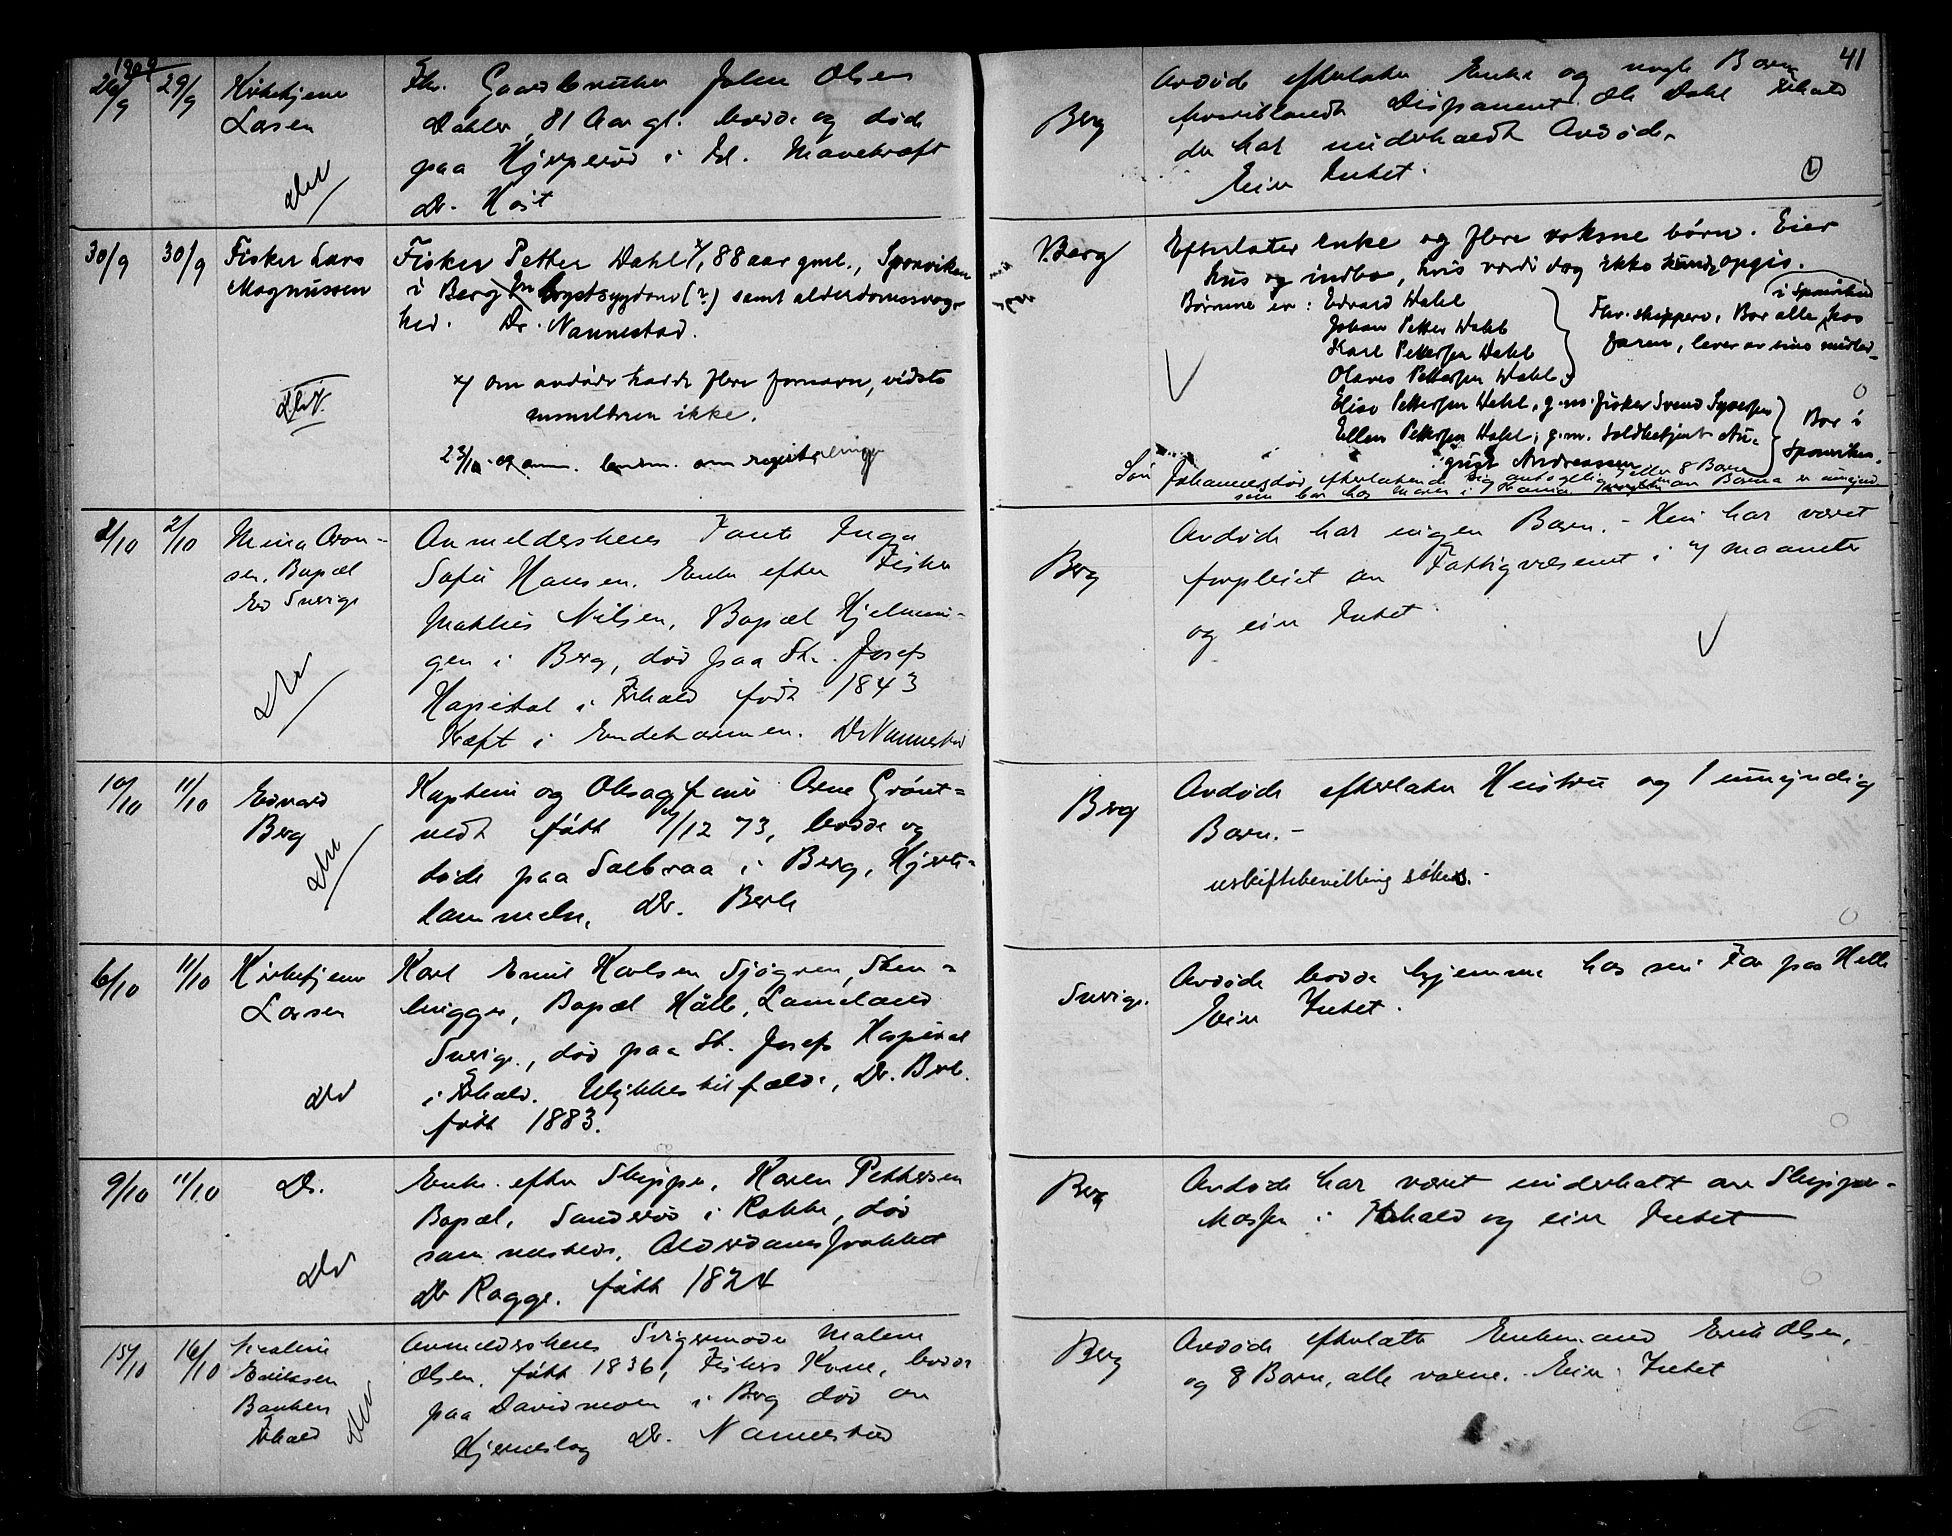 1909
41
26/9 29/9 Kirketjener
Larsen
Fhv. Gaardbruker Johan Olsen
Dahler, 81 Aar gl. bodde og døde
paa Hjerperød i Id. Mavekræft
Dr. Høst
Berg
Avdøde efterlater Enke og Barn
hvoriblandt Disponent Ole Dahl
der har underholdt Avdøde.
Eier Intet.
30/9 30/9 Fisker Lars
Magnussen
Fisker Petter Dahl x/, 88 aar gml., Sponviken
i Berg brystsygdom (?) samt alderdomssvag-
hed. Dr. Nannestad.
x/ om avdøde hadde flere fornavn, vidste
anmelderen ikke.
Berg
Efterlater enke og flere voksne børn. Eier
hus og indbo, hvis værdi dog ikke opgis.
Børnene er: Edvard Dahl
Johan Petter Dahl
Karl Pettersen Dahl
Olaves Pettersen Dahl
Fhv. skippere. Bor alle hos
i Sponviken
faren, lever av sine midler
Elise Pettersen Dahl, g.m. fisker Svend Syversen
Ellen Pettersen Dahl, g.m. toldbetjent Au-
gust Andreassen
Bor i
Sponviken.
Søn Johannes død, efterlatende sig antagelig 7 eller 8 Barn
2/10 2/10 Mina Aron-
sen, Bopæl
Ed Sverige
Anmelderskens Tante Inga
Sofie Hansen. Enke efter Fisker
Mathies Nilsen, Bopæl Hjelmun-
gen i Berg, død paa St. Josefs
Hospital i Fr.hald født 1843
Kræft i Endetarmen. Dr Nannestad
Berg
Avdøde har ingen Barn. - Hun har været
forpleiet av Fattigvæsenet i 4 maaneter
og eier Intet
10/10 11/10 Edvard
Berg
Kaptein og Olsagfører Arne Grønt-
vedt født /12 73, bodde og
døde paa Solbraa i Berg, Hjerte-
lammelse, Dr. Berle
Berg
Avdøde efterlater Hustru og 1 umyndig
Barn. -
uskiftebevilling søkes. -
6/10 11/10 Kirketjener
Larsen
Karl Emil Karlsen Sjøgren, Sten-
hugger, Bopæl Hålle, Lommeland
Sverige, død paa St. Josefs Hospital
i Fr.hald. Ulykkestilfælde, Dr. Berle.
født 1883.
Sverige.
Avdøde bodde hjemme hos sin Far paa Helle
Eier Intet.
9/10 11/10 Do.
Enke efter Skipper, Karen Pettersen
Bopæl, Sanderød i Rokke, død
sammesteds, Alderdomssvakhet
Dr Rogge. født 1824
Berg
Avdøde har været underholdt av Skipper-
kassen i Fr.hald og eier Intet
15/10 16/10
Eriksen
Banken
Fr.hald
Anmelderskens Svigermoder Malene
Olsen, født 1836, Fiskers Kone, bodde
paa Davidmoen i Berg død av
Hjerneslag Dr. Nannestad
Berg
Avdøde efterlatte Enkemand Erik Olsen,
og 8 Barn, alle voxne. Eier Intet